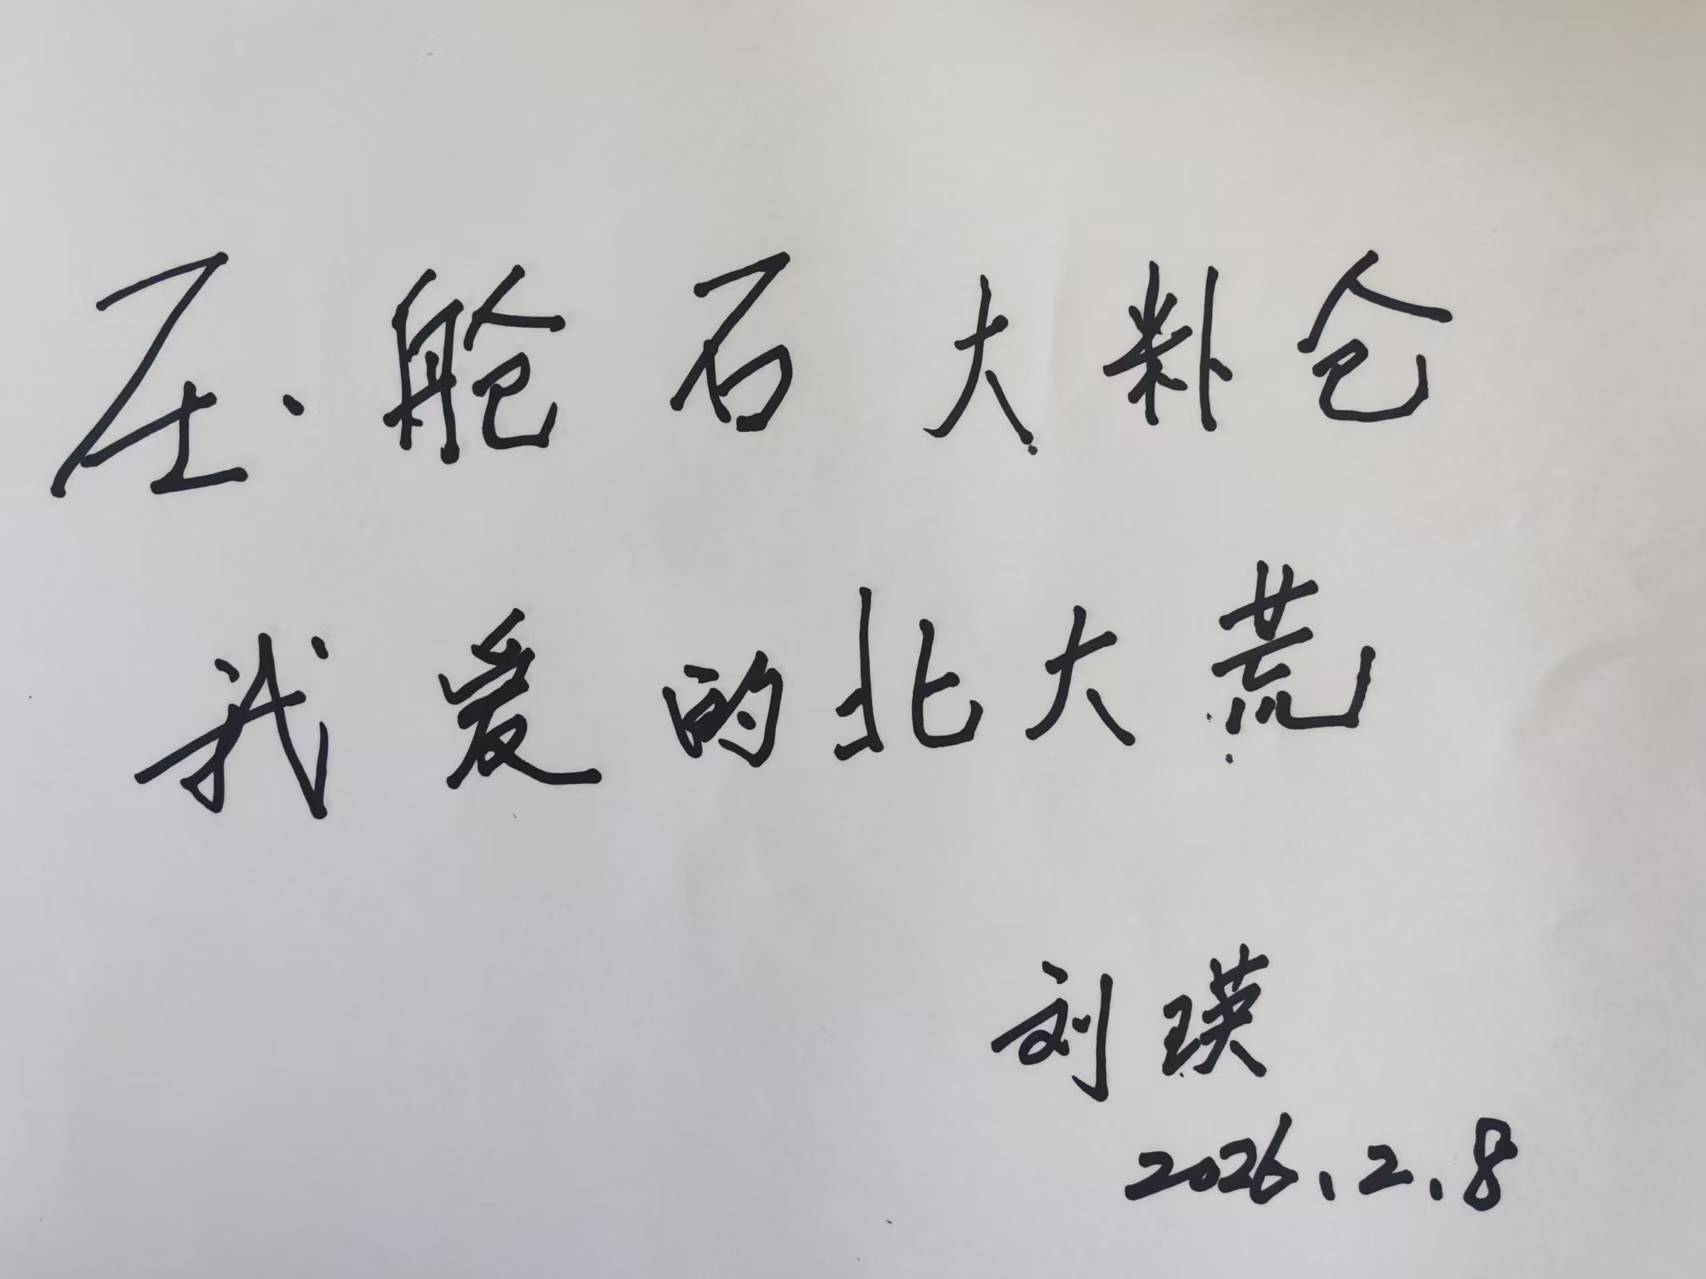 压舱石大料仓
我爱的北大荒
刘瑛
2026.2.8